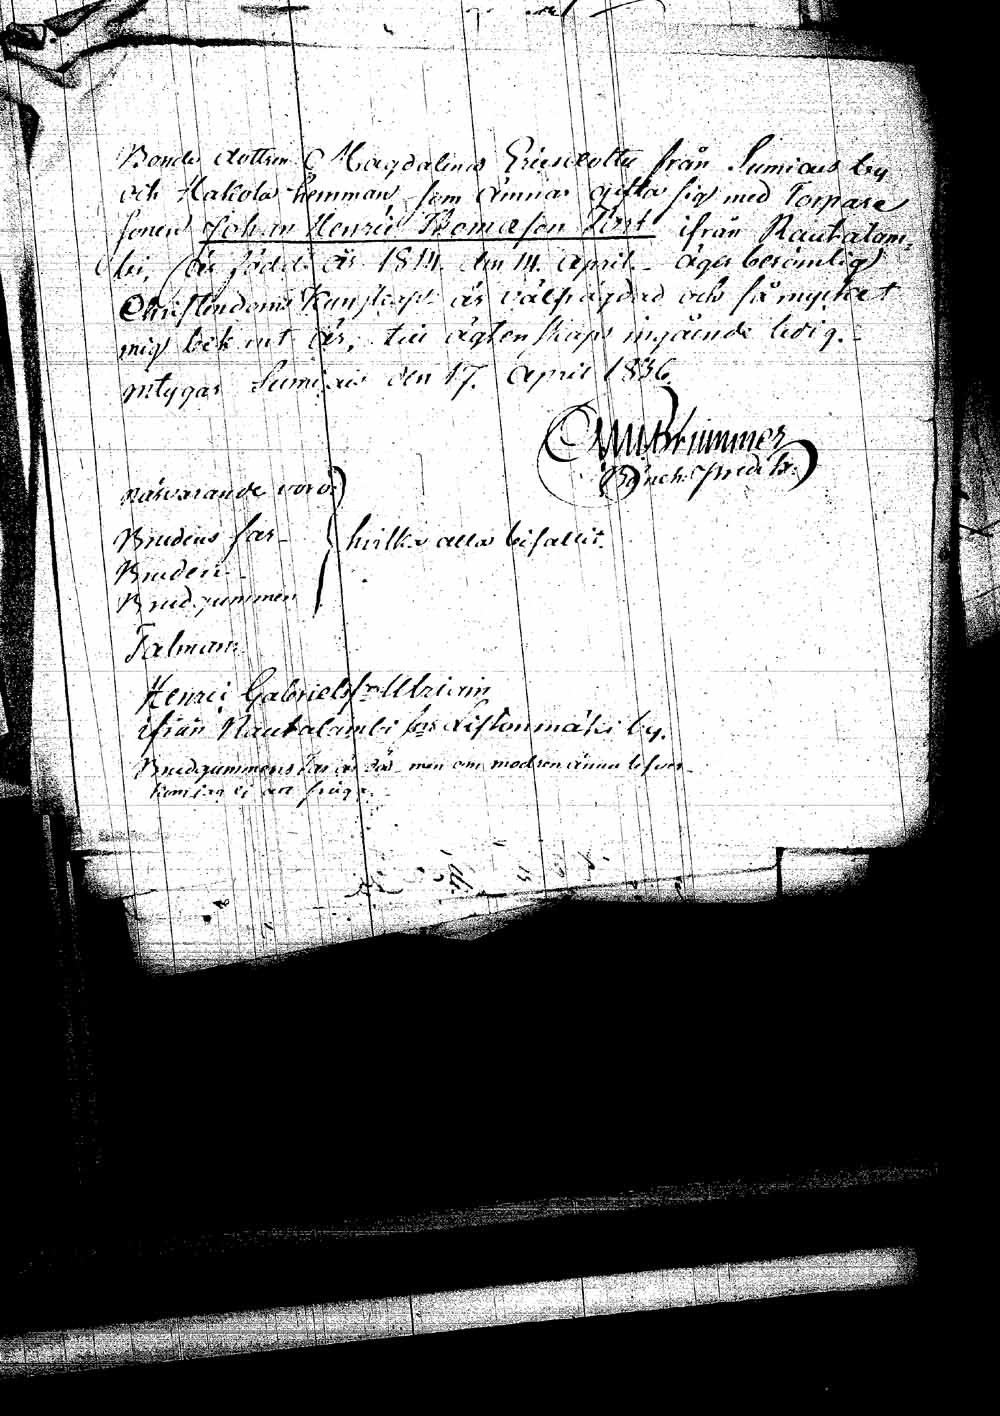 Bonde dottren Magdalina Ericsdotter från Sumiais by
och Hakola hemman, som ämnar gifta sig med Torpare
sonen Johan Henric Thomasson Tört ifrån Rautalam-
bi, är född år 1814. den 14. April. äger berömlig
Christendoms Kunskap är välfrägdad och så mycket
mig bekant är, till ägtenskaps ingående ledig.
intygar Sumiais den 17. April 1836.
Brummer
närvarande voro:
Brudens far
Bruden
Brudgummen
hvilka alla bifallit.
Talman
Henric Gabrielss:n Utriain
ifrån Rautalambi Liftonmäki by.
Brudgummens far är död men om modren ännu lefver
kom jag ej att fråga.